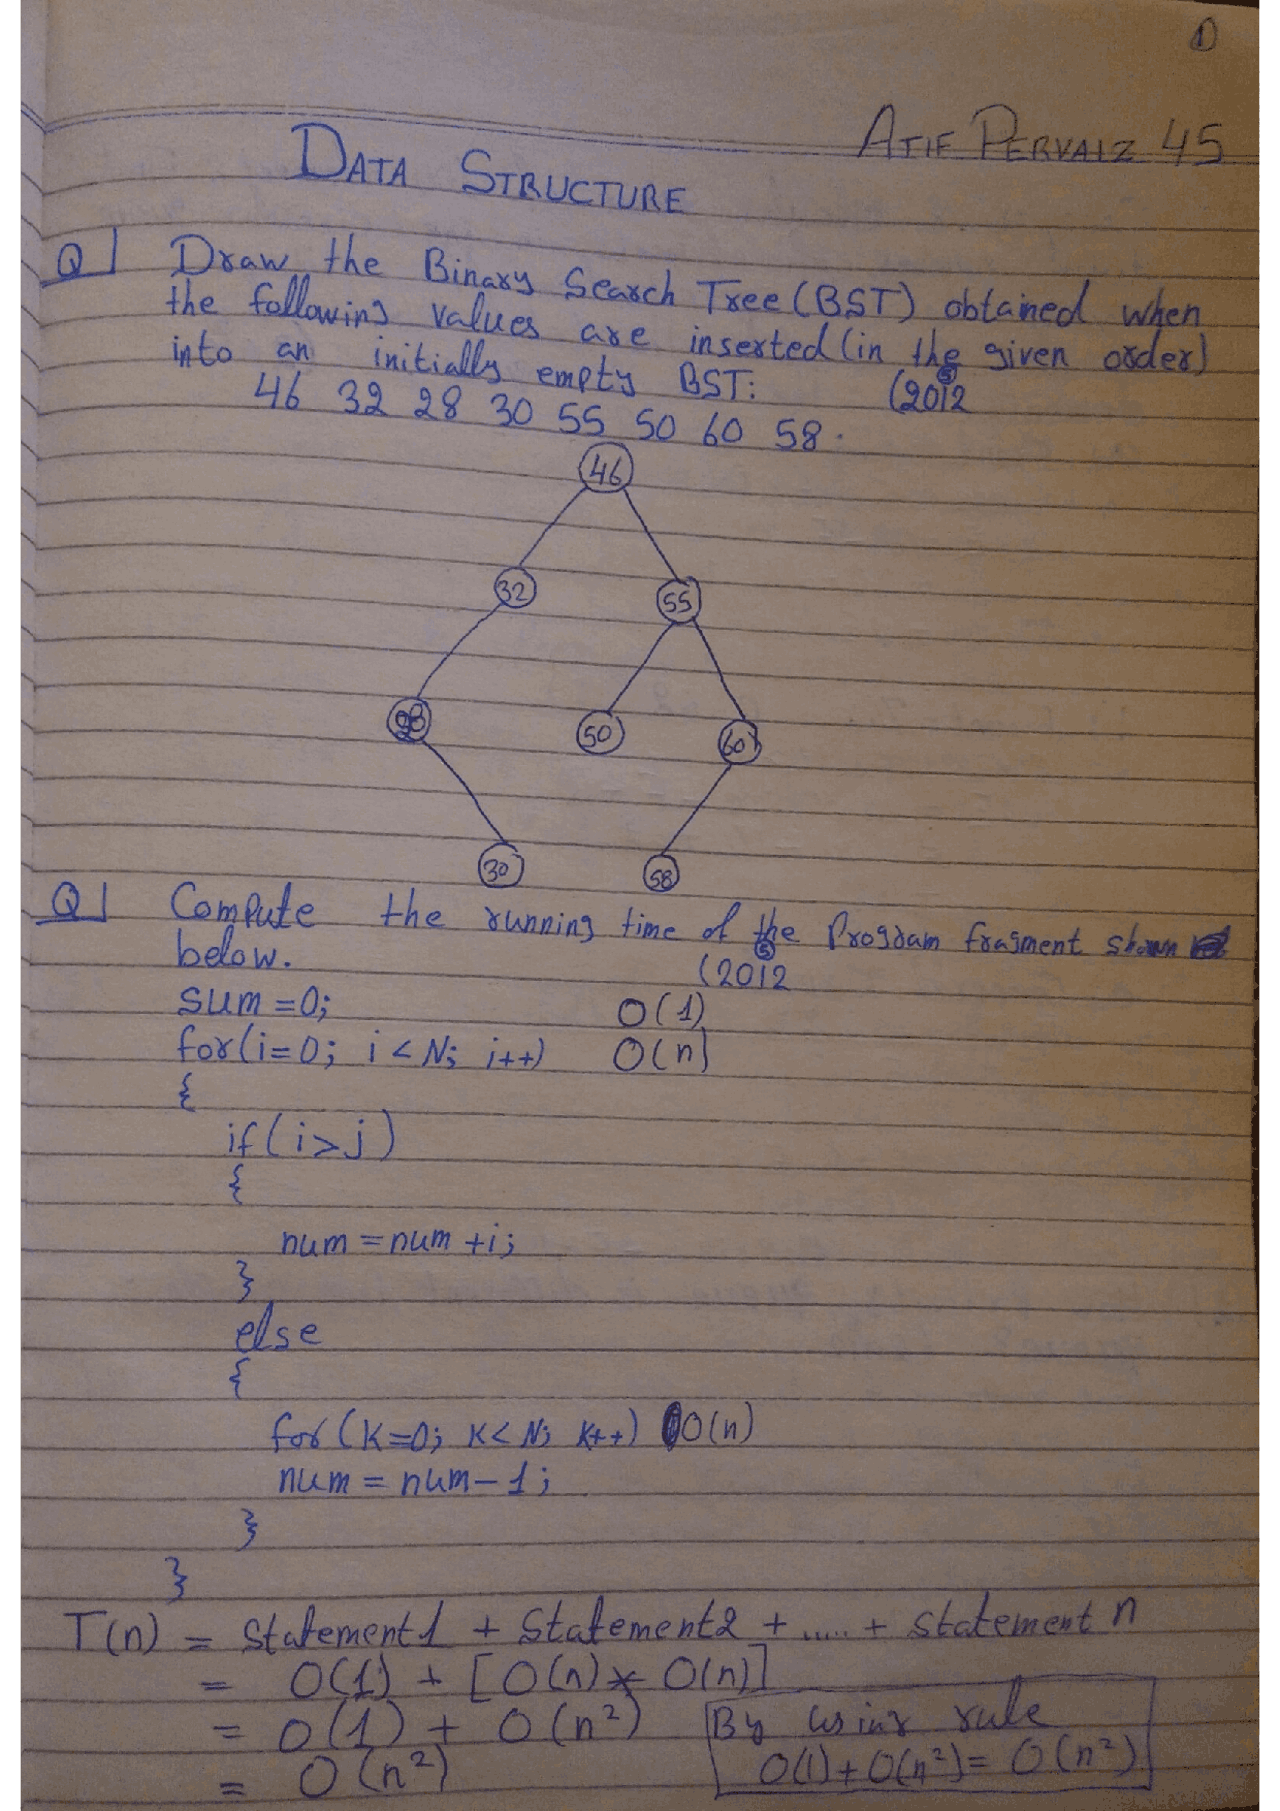 1
ATIF PERVAIZ 45
DATA STRUCTURE
Q Draw the Binary Search Tree (BST) obtained when
the following values are inserted (in the given order)
into an initially empty BST: (2012 5
46 32 28 30 55 50 60 58.
46
32 55
28 50 60
30 58
Q Compute the running time of the Program fragment shown
below. (2012 5
sum = 0; O(1)
for(i=0; i<N; i++) O(n)
{
if(i>j)
{
num = num +i;
}
else
{
for (K=0; K<N; K++) O(n)
num = num - 1;
}
}
T(n) = Statement1 + Statement2 + ..... + Statement n
= O(1) + [O(n) * O(n)]
= O(1) + O(n²)
= O(n²)
By using rule
O(1)+O(n²)= O(n²)